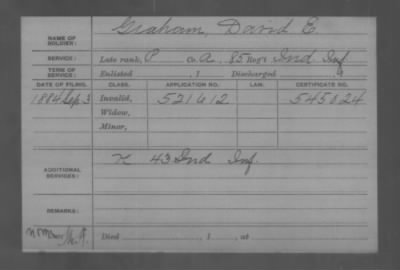 NAME OF SOLDIER: Graham, David E.
SERVICE: Late rank, P Co. A, 85 Reg't Ind Inf
TERM OF SERVICE: Enlisted , 1 Discharged , 1
DATE OF FILING. CLASS. APPLICATION NO. LAW. CERTIFICATE NO.
1884 Sep 3 Invalid, 521612 545024
Widow,
Minor,
ADDITIONAL SERVICES: K 43 Ind Inf.
REMARKS:
Died , 1 , at